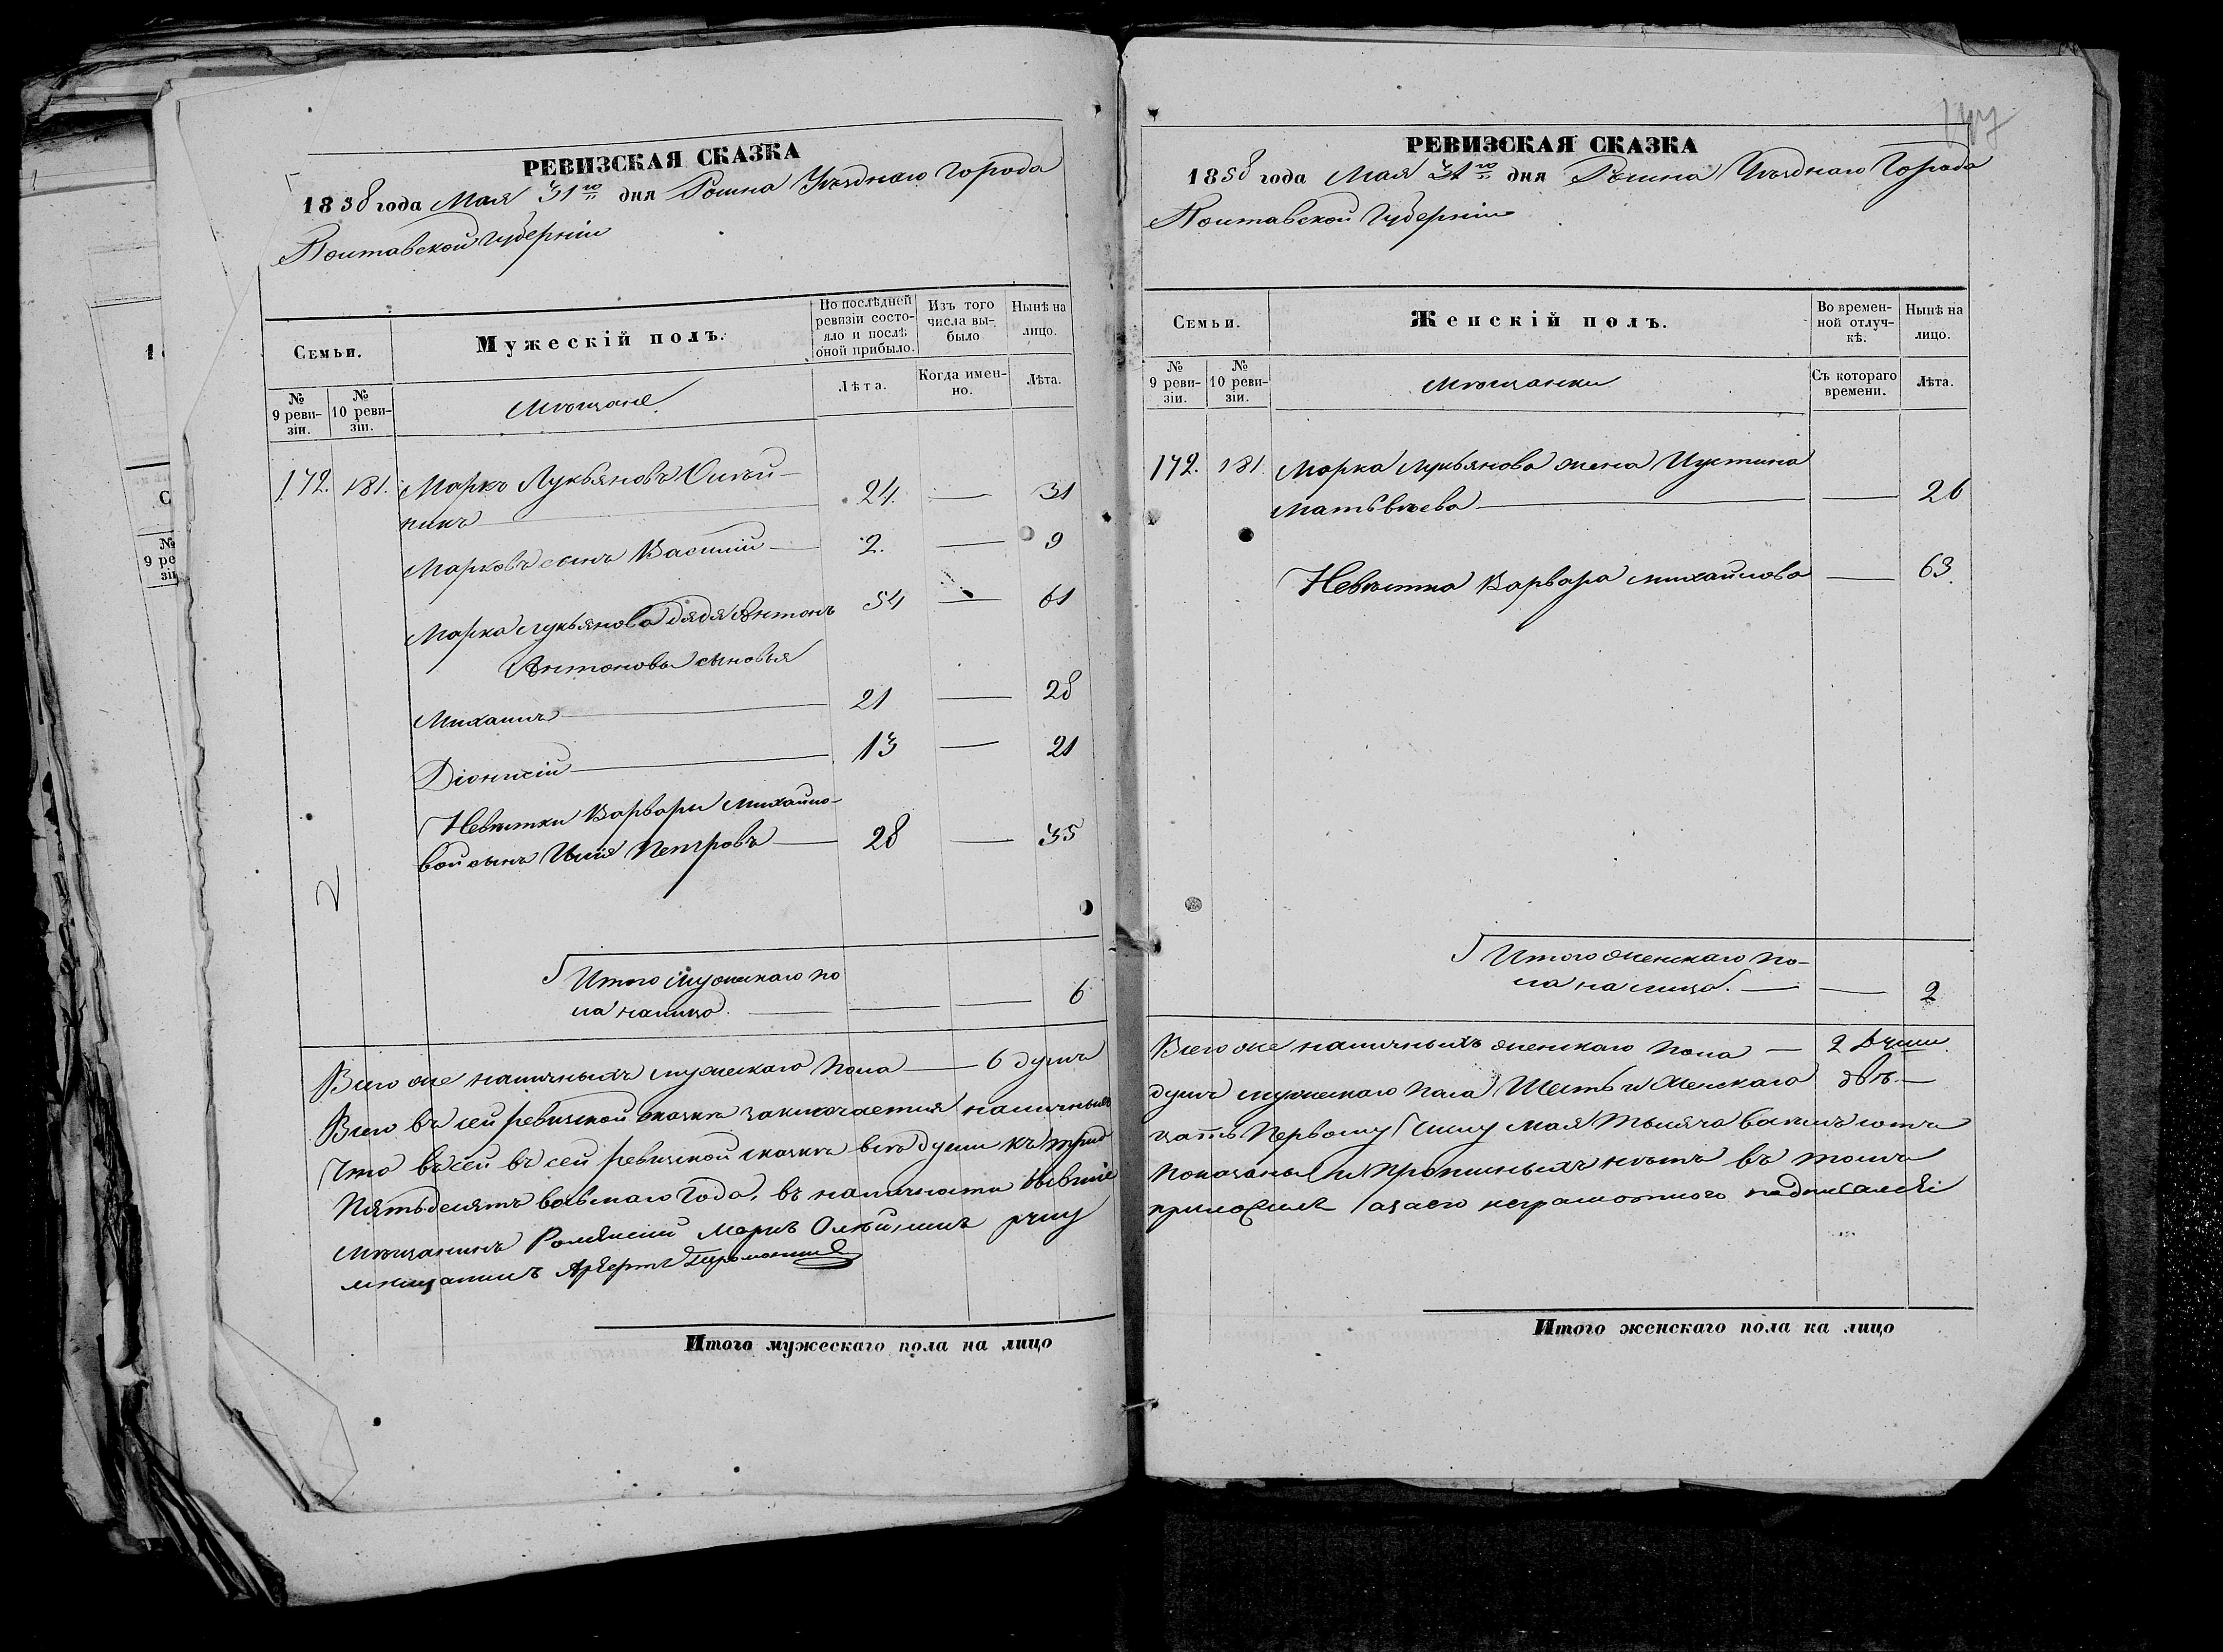 РЕВИЗСКАЯ СКАЗКА
1858 года Мая 31го дня Ромна Уѣзднаго Города
Полтавской Губерніи
Семьи.
Мужескій полъ.
По послѣдней ревизіи состояло и послѣ оной прибыло.
Изъ того числа выбыло
Ныне на лицо.
№ 9 ревизіи.
№ 10 ревизіи.
Мѣщане
Лѣта.
Когда именно.
Лѣта.
172. 181. Маркъ Лукьяновъ Олѣй-
никъ 24. — 31
Марковъ сынъ Василій — 2. — 9
Марка Лукьянова дядя Антонъ 54 — 61
Антоновы сыновья
Михаилъ — 21 — 28
Діонисій — 13 — 21
Невѣстки Варвары Михайло-
вой сынъ Илія Петровъ — 28 — 35
2
Итого мужескаго по
ла налицо. — — — 6
Всего же наличныхъ мужескаго пола — 6 душъ
Всего въ сей ревизской сказкѣ заключается наличныхъ
Что въ сей въ сей ревизской сказкѣ всѣ души къ трид
Пятьдесятъ восьмаго Года, въ наличности бывшіе
Мѣщанинъ Роменскій Маркъ Олѣйникъ руку
мѣщанинъ
Итого мужескаго пола на лицо
РЕВИЗСКАЯ СКАЗКА
1858 года Мая 31го дня Ромна Уѣзднаго Города
Полтавской Губерніи
Семьи.
Женскій полъ.
Во временной отлучкѣ.
Нынѣ на лицо.
№ 9 ревизіи.
№ 10 ревизіи.
Мѣщанки
Съ котораго времени.
Лѣта.
172. 181. Марка Лукьянова жена Иустина
Матьвѣева — — 26
Невѣстка Варвара Михайлова — 63.
Итого женскаго по-
ла на лицо. — — 2
Всего же наличныхъ женскаго пола — 2 Души.
душъ мужескаго пола Шесть и Женскаго двѣ. —
цать Первому Числу Мая Тысяча восемь сотъ
показаны и прописныхъ нѣтъ въ томъ
приложилъ а за его неграмотного подписался
Итого женскаго пола на лицо